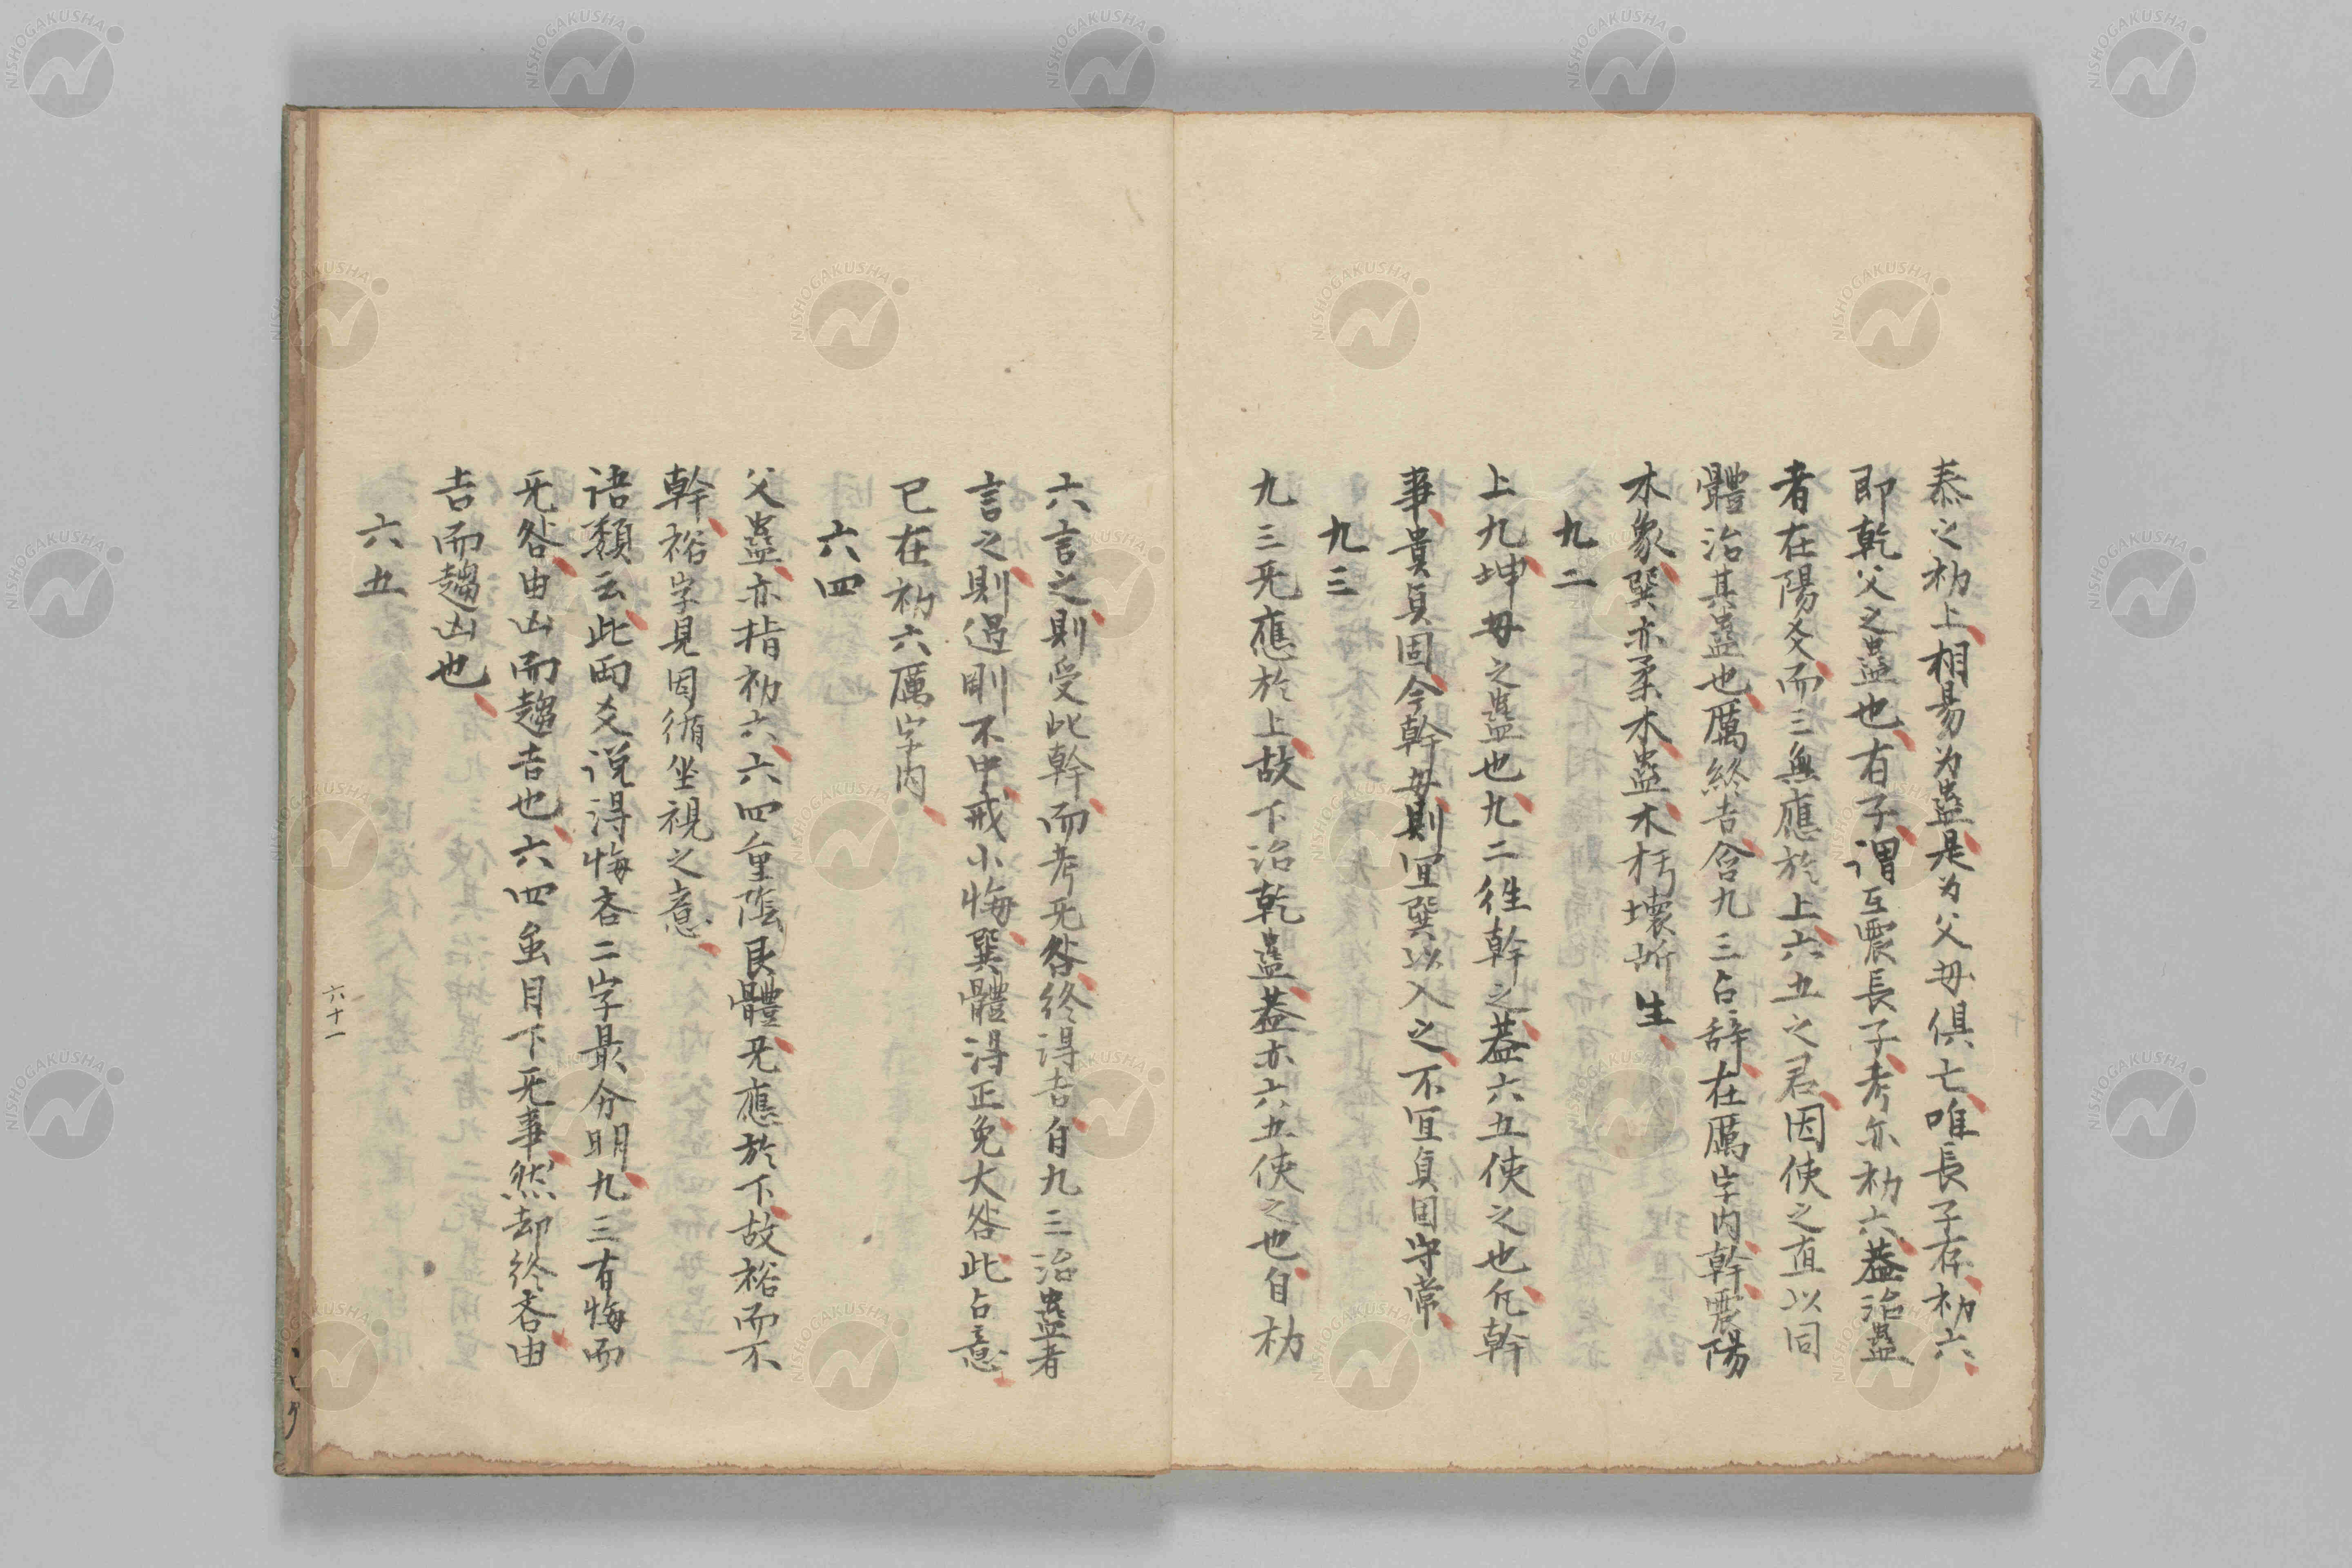 泰之初上相易为蠱是为父母俱亡唯長子存初六
即乾父之蠱也有子謂互震長子考亦初六蓋治蠱
者在陽爻而三無應於上六五之君因使之直以同
體治其蠱也厲終吉含九三占辞在厲字内幹震陽
木象巽亦柔木蠱木朽壞所生
九二
上九坤母之蠱也九二徃幹之蓋六五使之也凢幹
事貴貞固今幹母則宜巽以入之不宜貞固守常
九三
九三旡應於上故下治乾蠱蓋亦六五使之也自初
六言之則受此幹而考旡咎終得吉自九三治蠱者
言之則過剛不中戒小悔巽體得正免大咎此占意
已在初六厲字内
六四
父蠱亦指初六六四重陰艮體旡應於下故裕而不
幹裕字見因循坐視之意
语類云此両爻说得悔吝二字最分明九三有悔而
旡咎由凶而趨吉也六四虽目下旡事然却終吝由
吉而趨凶也
六五
六十一
NISHOGAKUSHA